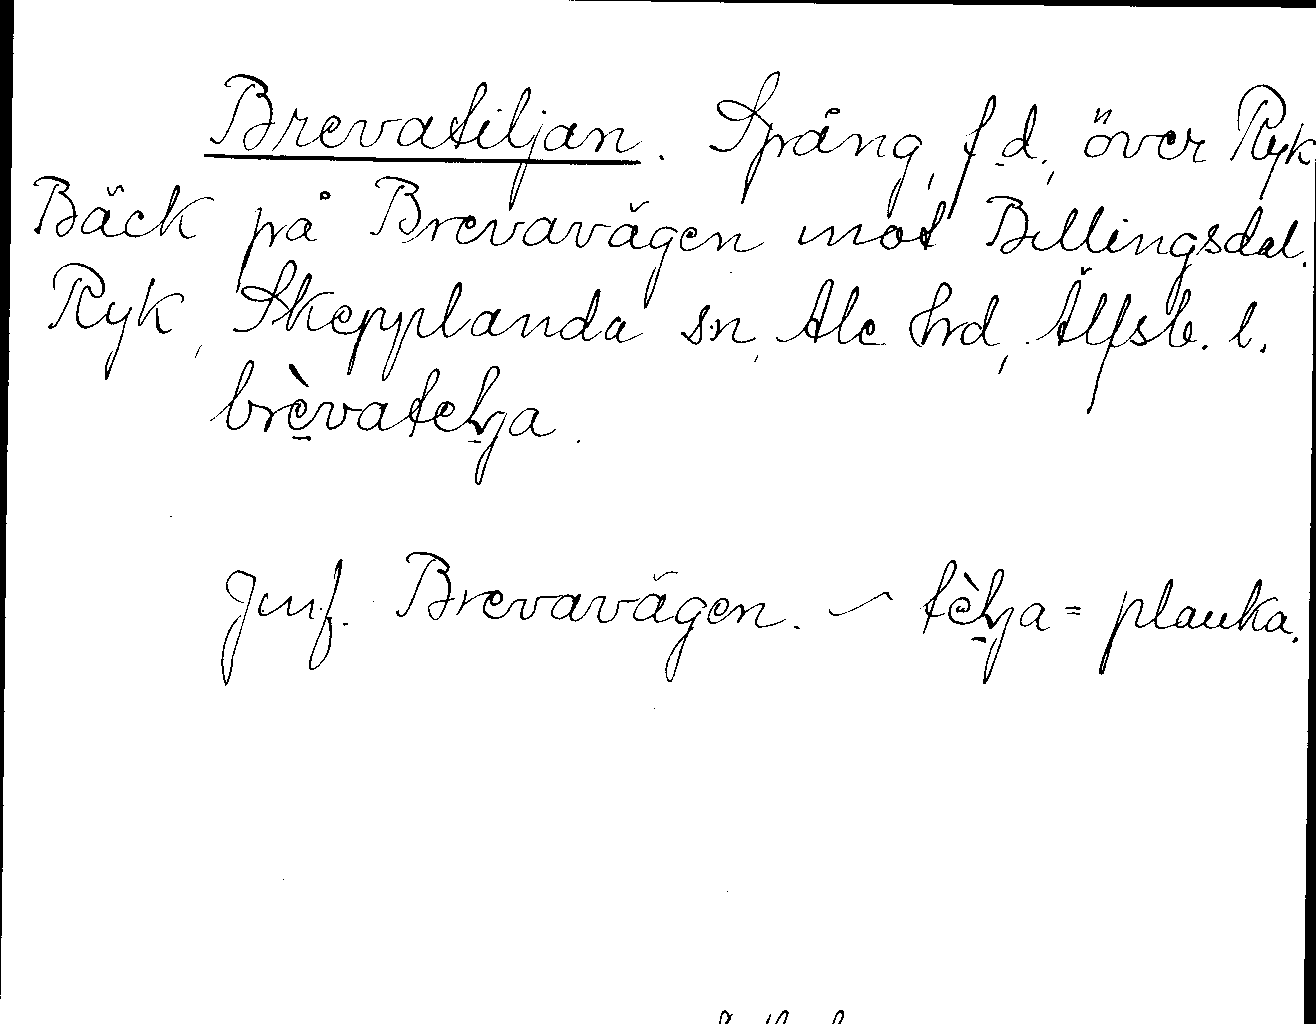 Brevatiljan. Spång, f.d., över Ryk
Bäck på Brevavägen mot Billingsdal.
Ryk, Skepplanda sn, Ale hrd, Älfsb. l.
brèvatelja.
Jmf. Brevavägen. ~ tèlja = planka.